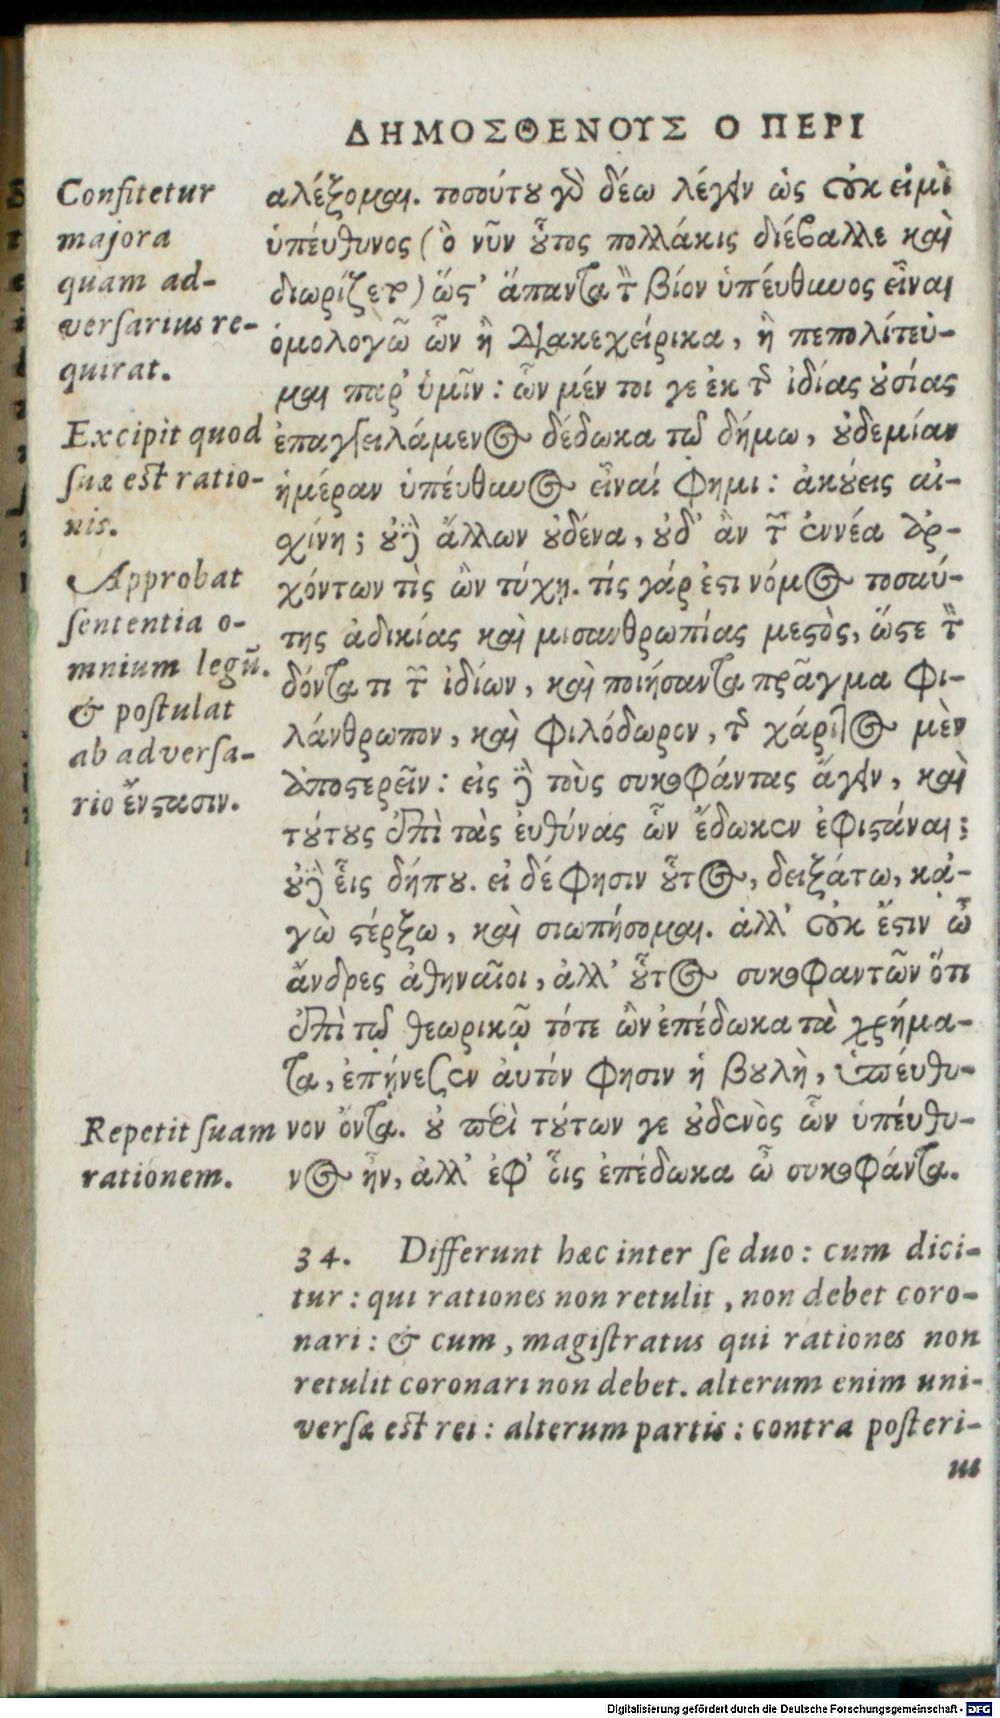 ΔΗΜΟΣΘΕΝΟΥΣ Ο ΠΕΡΙ
Confitetur
majora
quam ad-
versarius re-
quirat.
Excipit quod
suæ est ratio-
nis.
Approbat
sententia o-
mnium legū.
& postulat
ab adversa-
rio ἔνστασιν.
Repetit suam
rationem.
αλέξομαι. τοσούτου γὰρ δέω λέγειν ὡς οὐκ εἰμὶ
ὑπέυθυνος (ὃ νῦν οὗτος πολλάκις διέβαλλε καὶ
διωρίζετο) ὥς' ἅπαντα τὸν βίον ὑπέυθυνος εἶναι
ὁμολογῶ ὧν ἢ διακεχείρικα, ἢ πεπολίτευ-
μαι παρ' ὑμῖν: ὧν μέν τοι γε ἐκ τῆς ἰδίας οὐσίας
ἐπαγγειλάμενος δέδωκα τῷ δήμω, οὐδεμίαν
ἡμέραν ὑπέυθυνος εἶναί φημι: ἀκούεις αἰ-
σχίνη; οὐδὲ ἄλλων οὐδένα, οὐδ' ἂν τῶν ἐννέα ἀρ-
χόντων τὶς ὢν τύχῃ. τίς γάρ ἐστι νόμος τοσαύ-
της ἀδικίας καὶ μισανθρωπίας μεστὸς, ὥστε τὸν
δόντα τι τῶν ἰδίων, καὶ ποιήσαντα πρᾶγμα φι-
λάνθρωπον, καὶ φιλόδωρον, τῆς χάριτος μὲν
ἀποστερεῖν: εἰς δὲ τοὺς συκοφάντας ἄγειν, καὶ
τούτους ἐπὶ τὰς ἐυθύνας ὧν ἔδωκεν ἐφιστάναι;
οὐδὲ εἷς δήπου. εἰ δέ φησιν οὗτος, δειξάτω, κἀ-
γὼ στέρξω, καὶ σιωπήσομαι. ἀλλ' οὐκ ἔστιν ὦ
ἄνδρες ἀθηναῖοι, ἀλλ' οὗτος συκοφαντῶν ὅτι
ἐπὶ τῷ θεωρικῷ τότε ὢν ἐπέδωκα τὰ χρήμα-
τα, ἐπῄνεσεν ἀυτόν φησιν ἡ βουλὴ, ὑπέυθυ-
νον ὄντα. οὐ περὶ τούτων γε οὐδενὸς ὧν ὑπέυθυ-
νος ἦν, ἀλλ' ἐφ' οἷς ἐπέδωκα ὦ συκοφάντα.
34. Differunt hæc inter se duo: cum dici-
tur: qui rationes non retulit, non debet coro-
nari: & cum, magistratus qui rationes non
retulit coronari non debet. alterum enim uni-
versæ est rei: alterum partis: contra posteri-
us
Digitalisierung gefördert durch die Deutsche Forschungsgemeinschaft - DFG